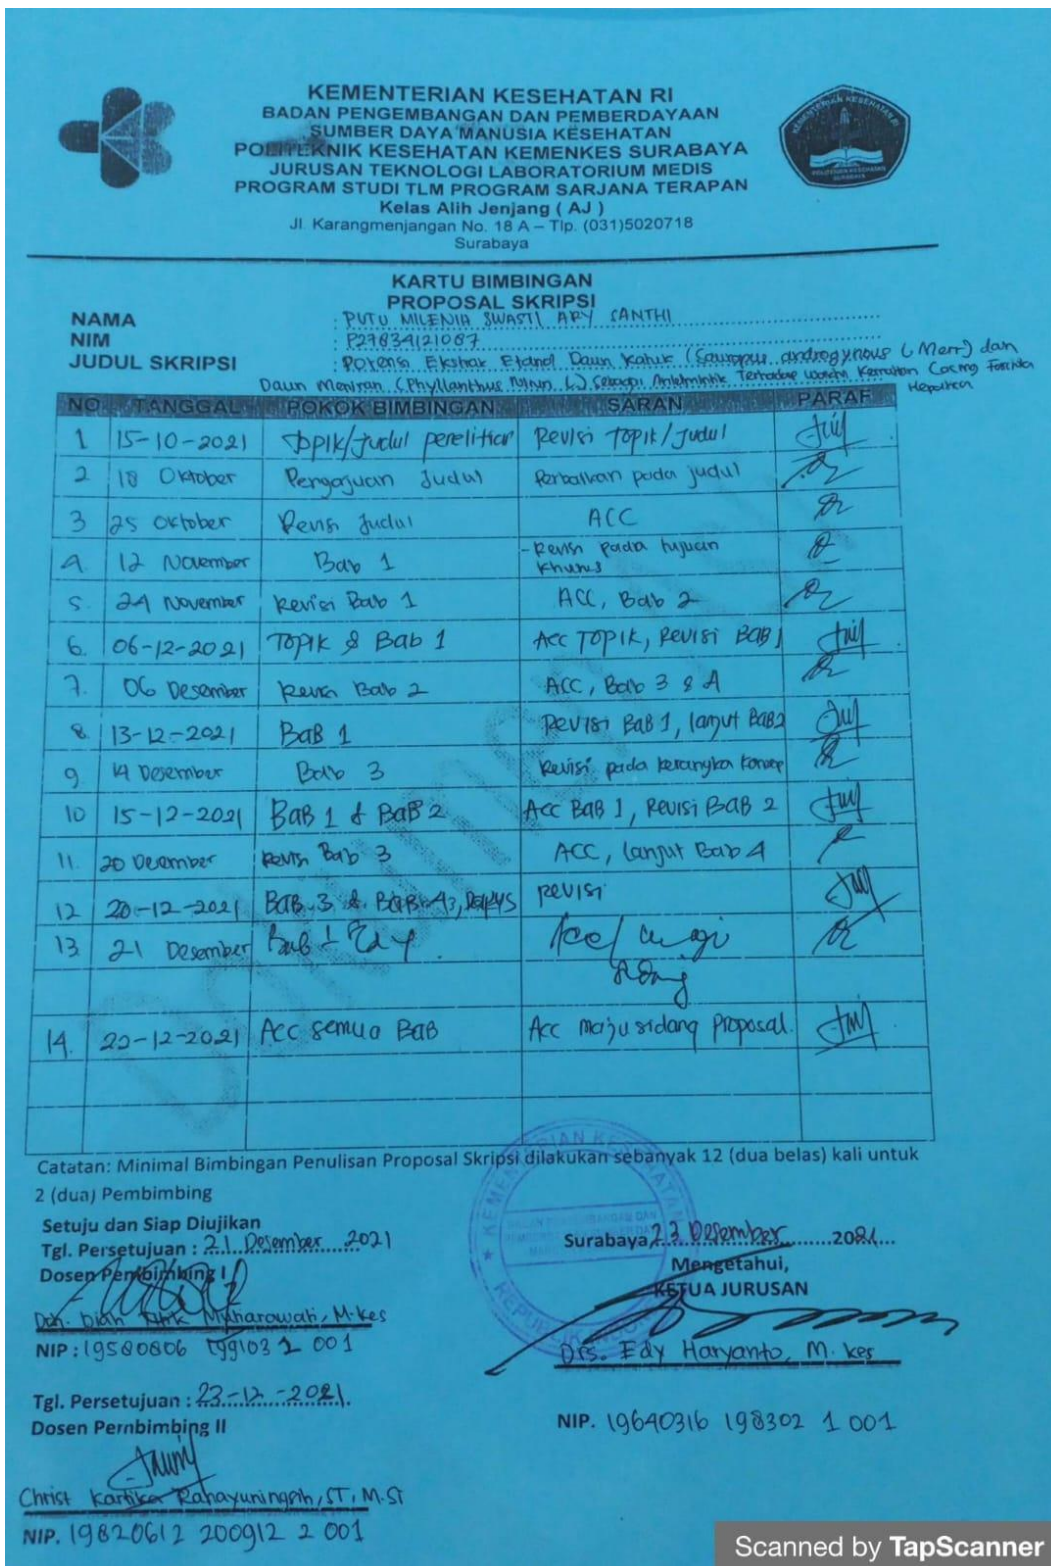 KEMENTERIAN KESEHATAN RI
BADAN PENGEMBANGAN DAN PEMBERDAYAAN
SUMBER DAYA MANUSIA KESEHATAN
POLITEKNIK KESEHATAN KEMENKES SURABAYA
JURUSAN TEKNOLOGI LABORATORIUM MEDIS
PROGRAM STUDI TLM PROGRAM SARJANA TERAPAN
Kelas Alih Jenjang ( AJ )
Jl. Karangmenjangan No. 18 A – Tlp. (031)5020718
Surabaya
KARTU BIMBINGAN
PROPOSAL SKRIPSI
NAMA : PUTU MILENIA SWASTI ARY SANTHI
NIM : P27834121067
JUDUL SKRIPSI : Potensi Ekstrak Etanol Daun Katuk (Sauropus androgynous L Merr) dan
Daun Meniran (Phyllanthus Niruri L) Sebagai Antelmintik Terhadap Waktu Kematian Cacing Fasciola
Hepatica
NO TANGGAL POKOK BIMBINGAN SARAN PARAF
1 15-10-2021 Topik/Judul penelitian Revisi Topik/Judul
2 18 Oktober Pengajuan Judul Perbaikan pada judul
3 25 Oktober Revisi Judul ACC
4. 12 November Bab 1 - Revisi pada tujuan
khusus
5. 24 November Revisi Bab 1 ACC, Bab 2
6. 06-12-2021 Topik & Bab 1 Acc Topik, Revisi BAB 1
7. 06 Desember Revisi Bab 2 ACC, Bab 3 & 4
8. 13-12-2021 BaB 1 Revisi BaB 1, lanjut BaB2
9. 14 Desember Bab 3 Revisi pada kerangka konsep
10 15-12-2021 BaB 1 & BaB 2 Acc BaB 1, Revisi BaB 2
11. 20 Desember Revisi Bab 3 ACC, lanjut Bab 4
12 20-12-2021 BaB 3 & BaB 4, revisi
13 21 Desember Bab 1
14. 22-12-2021 Acc semua BaB Acc maju sidang Proposal.
Catatan: Minimal Bimbingan Penulisan Proposal Skripsi dilakukan sebanyak 12 (dua belas) kali untuk
2 (dua) Pembimbing
Setuju dan Siap Diujikan
Tgl. Persetujuan : 21 Desember 2021
Dosen Pembimbing I
Muharowati, M.kes
NIP : 19580806 199103 2 001
Surabaya, 23 Desember 2021
Mengetahui,
KETUA JURUSAN
Drs. Edy Haryanto, M. kes
NIP. 19640316 198302 1 001
Tgl. Persetujuan : 23-12-2021.
Dosen Pembimbing II
Christ Kartika Rahayuningsih, ST, M.Si
NIP. 19820612 200912 2 001
Scanned by TapScanner